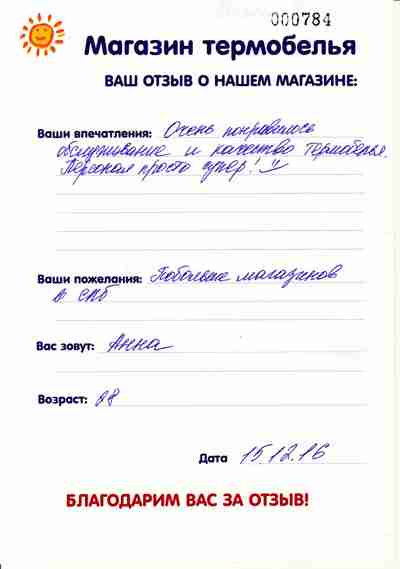 000784
Магазин термобелья
ВАШ ОТЗЫВ О НАШЕМ МАГАЗИНЕ:
Ваши впечатления: Очень понравилось
обслуживание и качество термобелья.
Персонал просто супер!
Ваши пожелания: Побольше магазинов
в СПб
Вас зовут: Анна
Возраст: 28
Дата 15.12.16
БЛАГОДАРИМ ВАС ЗА ОТЗЫВ!